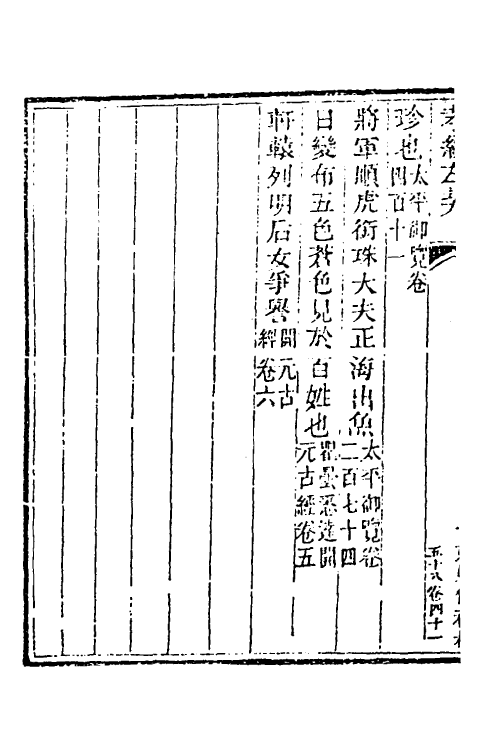 孝經左契
珍也太平御覽卷四百十一
將軍順虎銜珠大夫正海出魚太平御覽卷二百七十四
日變布五色蒼色見於百姓也瞿曇悉達開元古經卷五
軒轅列明后女爭譽開元古經卷六
五十八卷四十一